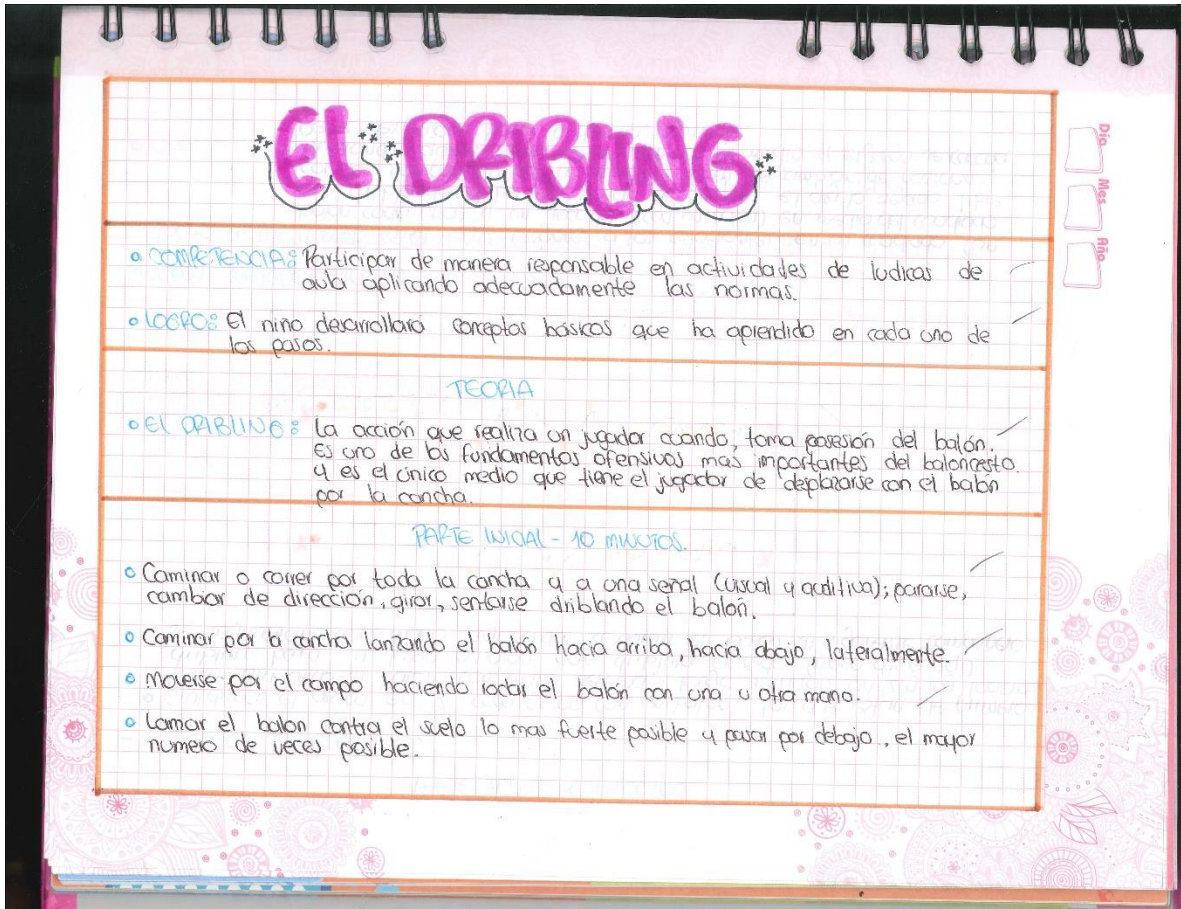 EL DRIBLING
Día Mes Año
o COMPETENCIA: Participar de manera responsable en actividades de ludicas de
aula aplicando adecuadamente las normas.
o LOGRO: El niño desarrollara conceptos básicos que ha aprendido en cada uno de
los pasos.
TEORIA
o EL DRIBLING: La acción que realiza un jugador cuando, toma posesión del balón.
Es uno de los fundamentos ofensivos mas importantes del baloncesto.
y es el único medio que tiene el jugador de desplazarse con el balón
por la cancha.
PARTE INICIAL - 10 MINUTOS.
o Caminar o correr por toda la cancha y a una señal (visual y auditiva); pararse,
cambiar de dirección, girar, sentarse driblando el balón.
o Caminar por la cancha lanzando el balón hacia arriba, hacia abajo, lateralmente.
o Moverse por el campo haciendo rodar el balón con una u otra mano.
o Lanzar el balon contra el suelo lo mas fuerte posible y pasar por debajo, el mayor
numero de veces posible.